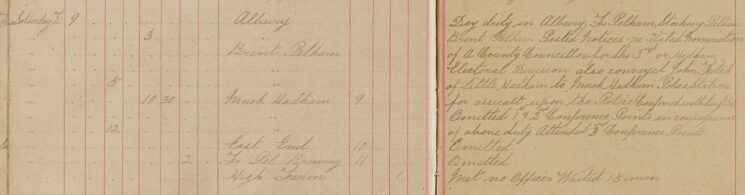 Saturday 2 9 Albury
3
Brent Pelham
5
10 30 Much Hadham 9
12
East End 10
2 Fx Pel Brewery 11
High Turn 1
Day duty in Albury, Fx Pelham, Stocking Pelham
Brent Pelham Posted Notices re Valid Nomination
of A County Councillor for the 3rd or
Electoral Division also conveyed John
of Little Hadham to Much Hadham Police Station
for assault upon the Police Conferred with Supt
Omitted 1st & 2nd Conference Points in consequence
of above duty Attended 3rd Conference Point
Omitted
Omitted
Met no Officer Waited 15 min